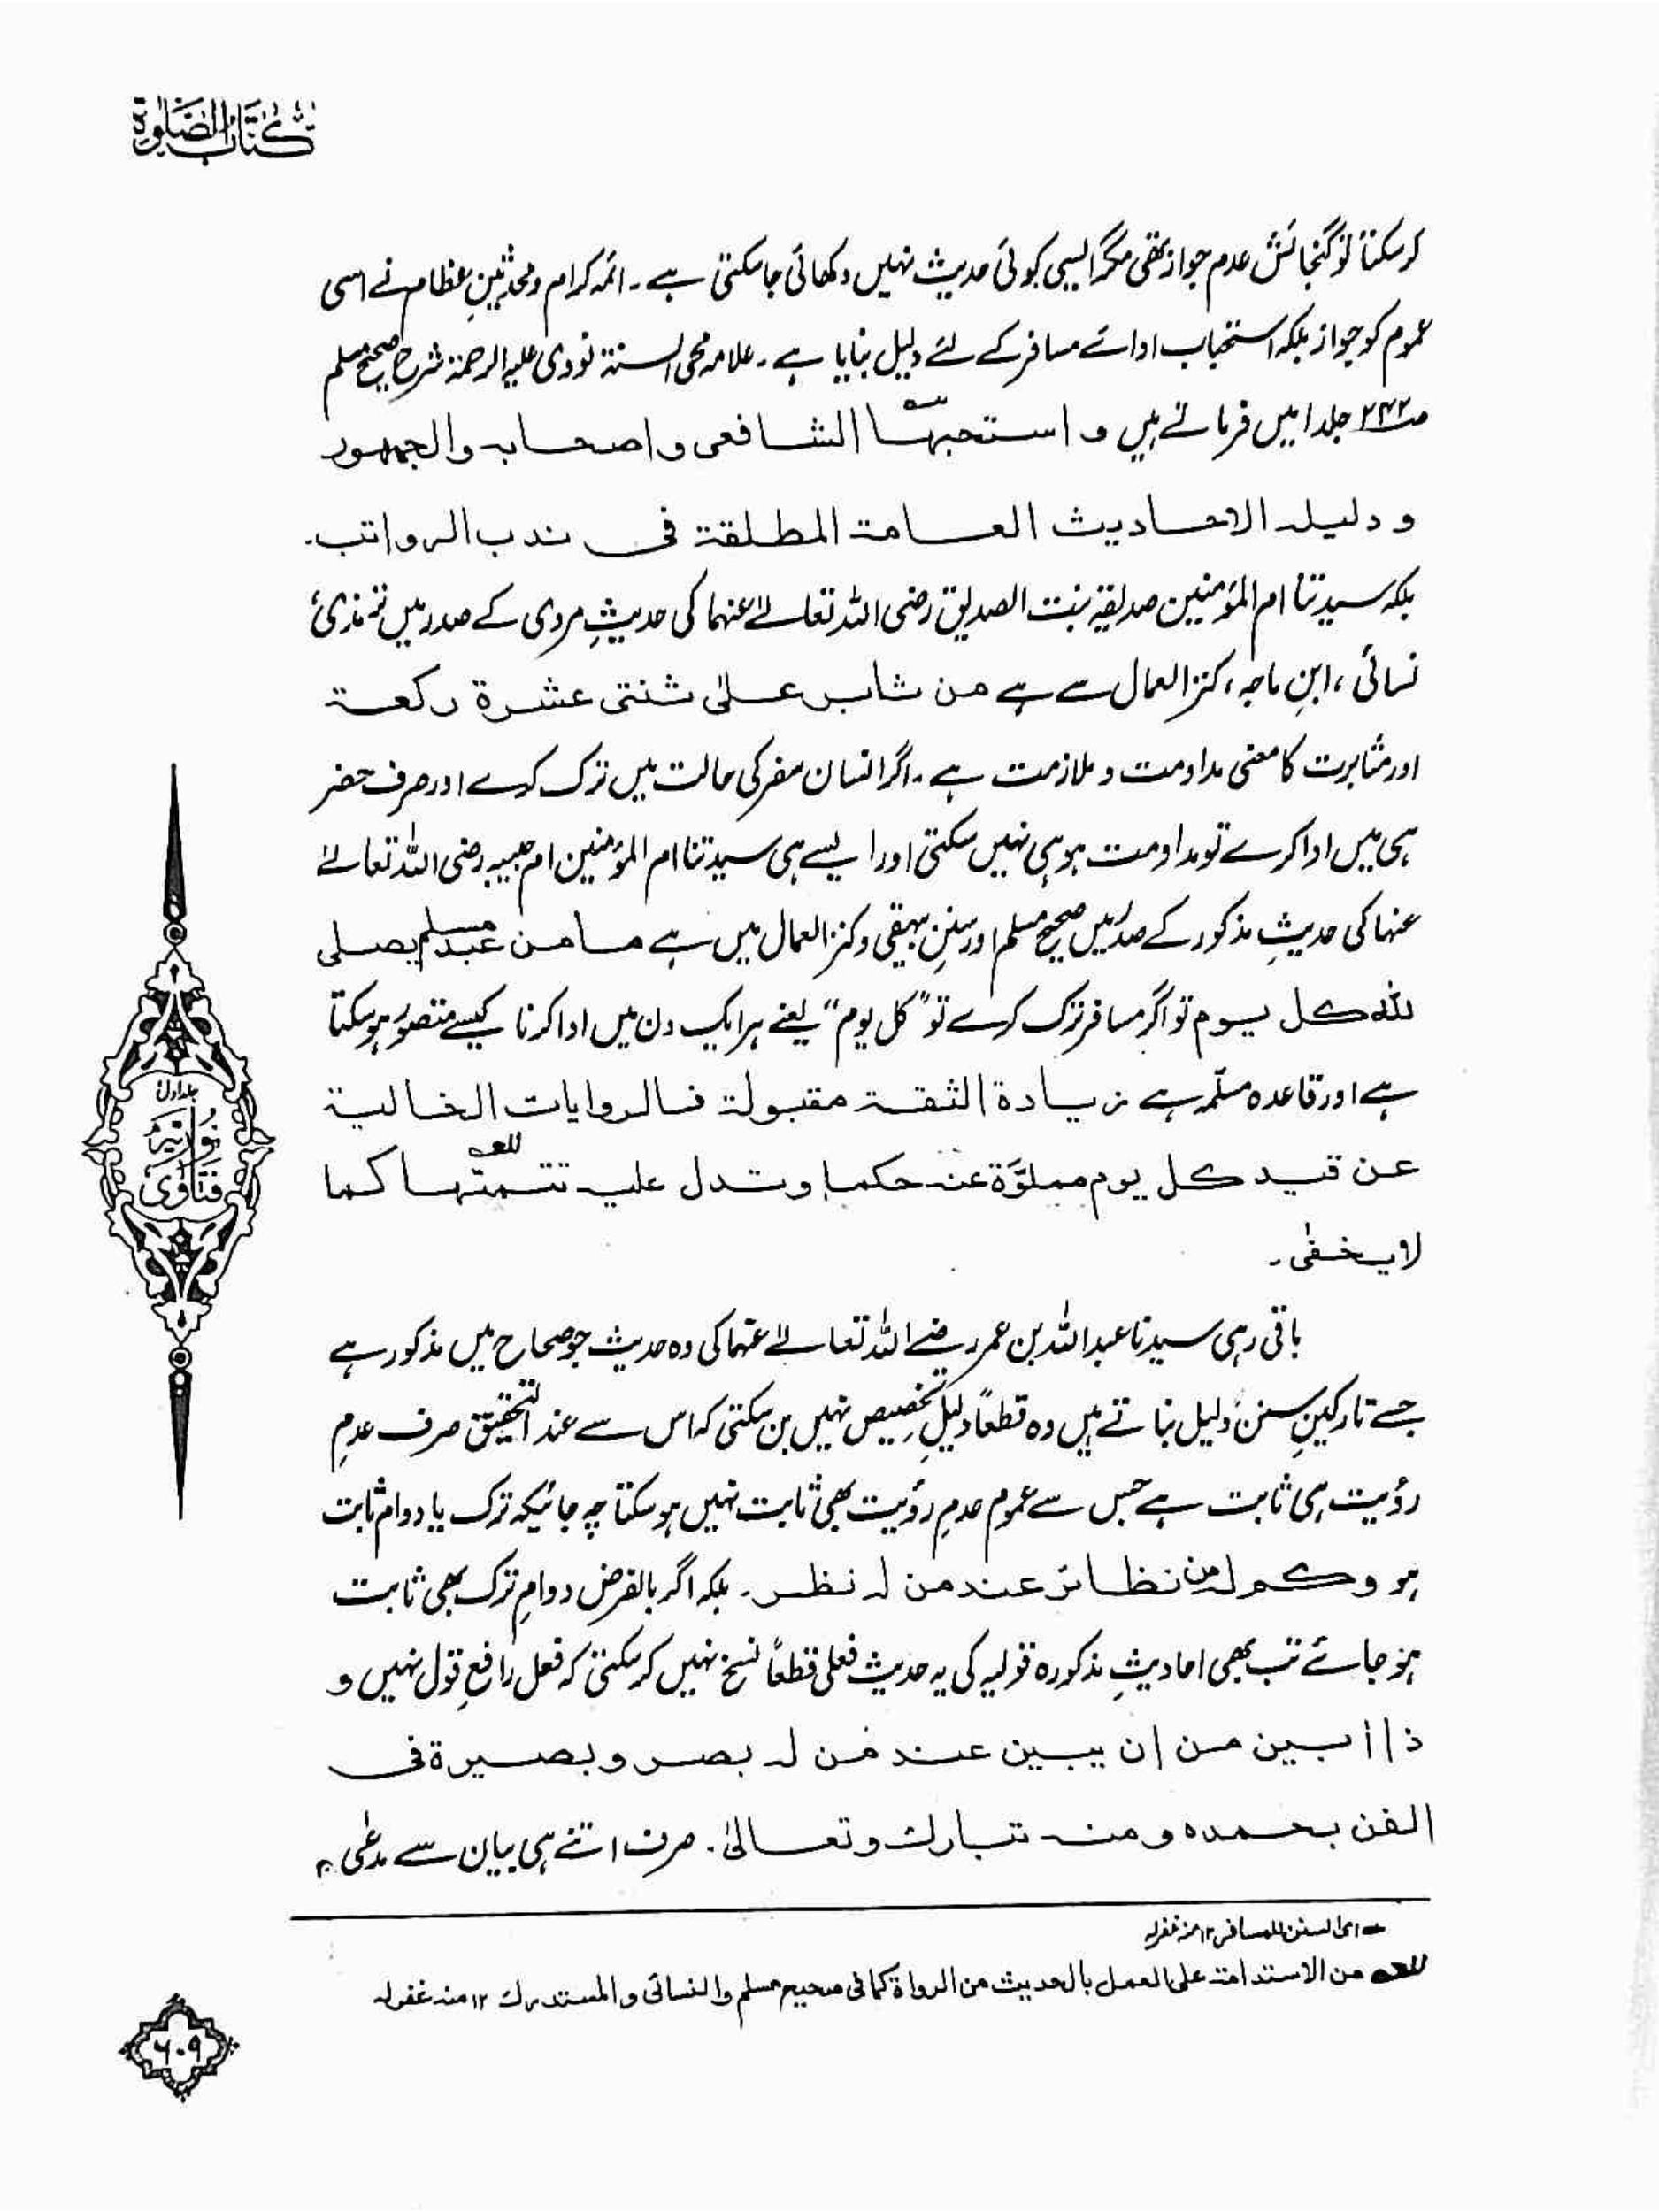 كتاب الصلوة
کرسکتا تو گنجائش عدم جواز تھی مگر ایسی کوئی حدیث نہیں دکھائی جاسکتی ہے۔ ائمہ کرام ومحدثینِ عظام نے اسی
عموم کو جواز بلکہ استحباب ادائے مسافر کے لئے دلیل بنایا ہے۔ علامہ محی السنۃ نووی علیہ الرحمۃ شرح صحیح مسلم
ص۲۴۲ جلد ۱ میں فرماتے ہیں و استحبہا الشافعی و اصحابہ والجمہور
و دلیلہ الاحادیث العامۃ المطلقۃ فی ندب الرواتب۔
بلکہ سیدتنا ام المؤمنین صدیقہ بنت الصدیق رضی اللہ تعالےٰ عنہما کی حدیثِ مروی کے صدر میں ترمذی
نسائی ، ابنِ ماجہ ، کنز العمال سے ہے من ثابر علیٰ ثنتی عشرۃ رکعۃ
اور مثابرت کا معنی مداومت و ملازمت ہے ۔ اگر انسان سفر کی حالت میں ترک کرے اور صرف حضر
ہی میں ادا کرے تو مداومت ہو ہی نہیں سکتی اور ایسے ہی سیدتنا ام المؤمنین ام حبیبہ رضی اللہ تعالےٰ
عنہا کی حدیثِ مذکور کے صدر میں صحیح مسلم اور سننِ بیہقی وکنز العمال میں ہے مامن عبد مسلم یصلی
للہ کل یوم تو اگر مسافر ترک کرے تو ”کل یوم“ یعنے ہر ایک دن میں ادا کرنا کیسے متصور ہوسکتا
ہے اور قاعدہ مسلّمہ ہے زیادۃ الثقۃ مقبولۃ فالروایات الخالیۃ
عن قید کل یوم مملوّۃ عنہ حکما و تدل علیہ تتمتہا کما
لا یخفیٰ ۔
باقی رہی سیدنا عبداللہ بن عمر رضے اللہ تعالےٰ عنہما کی وہ حدیث جو صحاح میں مذکور ہے
جسے تارکینِ سنن دلیل بناتے ہیں وہ قطعاً دلیلِ تخصیص نہیں بن سکتی کہ اس سے عند التحقیق صرف عدمِ
رؤیت ہی ثابت ہے جس سے عموم عدمِ رؤیت بھی ثابت نہیں ہوسکتا چہ جائیکہ ترک یا دوام ثابت
ہو وکم لہ من نظائر عند من لہ نظر ۔ بلکہ اگر بالفرض دوامِ ترک بھی ثابت
ہو جائے تب بھی احادیثِ مذکورہ قولیہ کی یہ حدیث فعلی قطعاً نسخ نہیں کرسکتی کہ فعل رافعِ قول نہیں و
ذا ابین من ان یبین عند من لہ بصر و بصیرۃ فی
الفن بحمدہ ومنہ تبارک وتعالیٰ۔ صرف اتنے ہی بیان سے مدعٰی
جلد اول
نوریہ
فتاوی
؎ ای السنن للمسافر ۱۲ منہ غفرلہ
للعہ من الاستدامۃ علی العمل بالحدیث من الرواۃ کما فی صحیح مسلم والنسائی والمستدرک ۱۲ منہ غفرلہ
۶۰۹